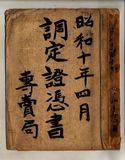 昭和十年四月
調定證憑書
專賣局